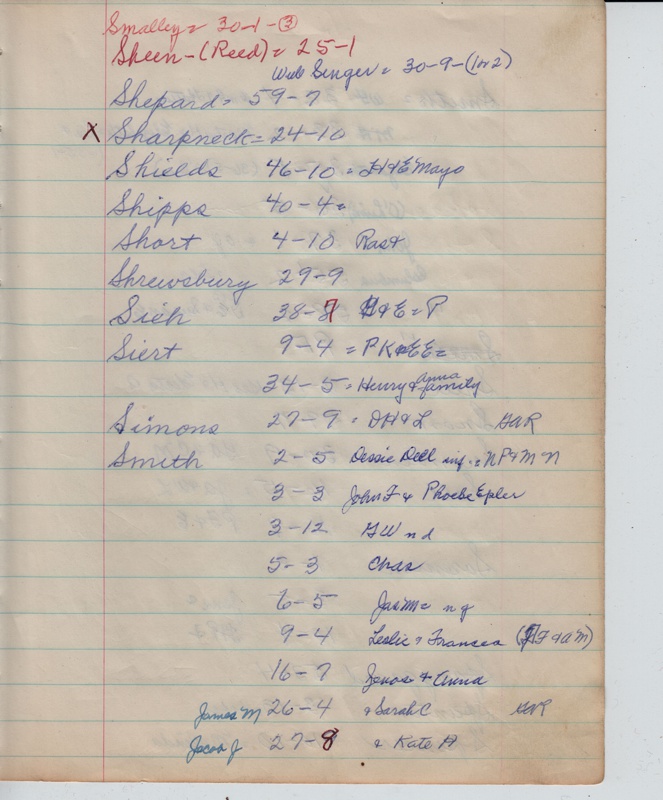 Smalley = 30-1-3
Skeen-(Reed) = 25-1
Singer = 30-9-(1or2)
Shepard = 59-7
X Sharpneck = 24-10
Shields 46-10 = H&E Mayo
Shipps 40-4 =
Short 4-10 Rast
Shrewsbury 29-9
Sieh 38-7 H&E = P
Siert 9-4 = P K & E E =
34-5 = Henry & Anna family
Simons 27-9 = DH & L GAR
Smith 2-5 Dessie Dell inf. = NP & M n
3-3 John F & Phoebe Epler
3-12 GW nd
5-3 Chas
6-5
9-4 Leslie & Frances
16-7 & Anna
James M 26-4 & Sarah C GAR
Jacob J 27-8 & Kate A